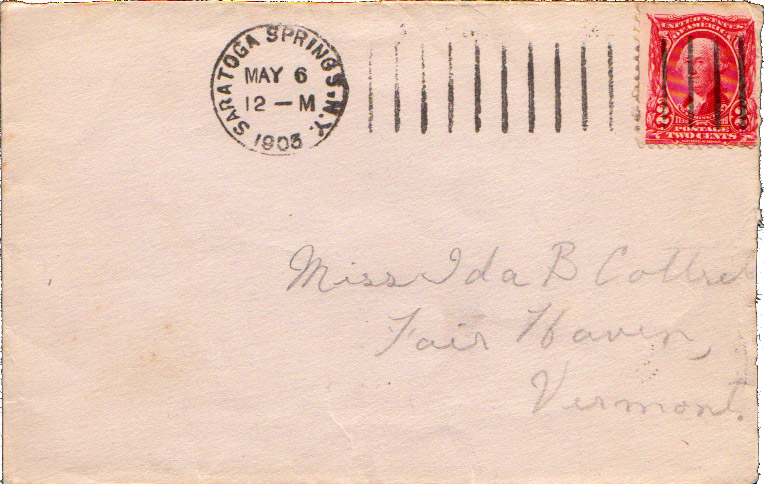 SARATOGA SPRINGS. N.Y.
MAY 6
12 - M
1903
UNITED STATES
OF AMERICA
2 2
POSTAGE
TWO CENTS
Miss Ida B Cottrel
Fair Haven,
Vermont.